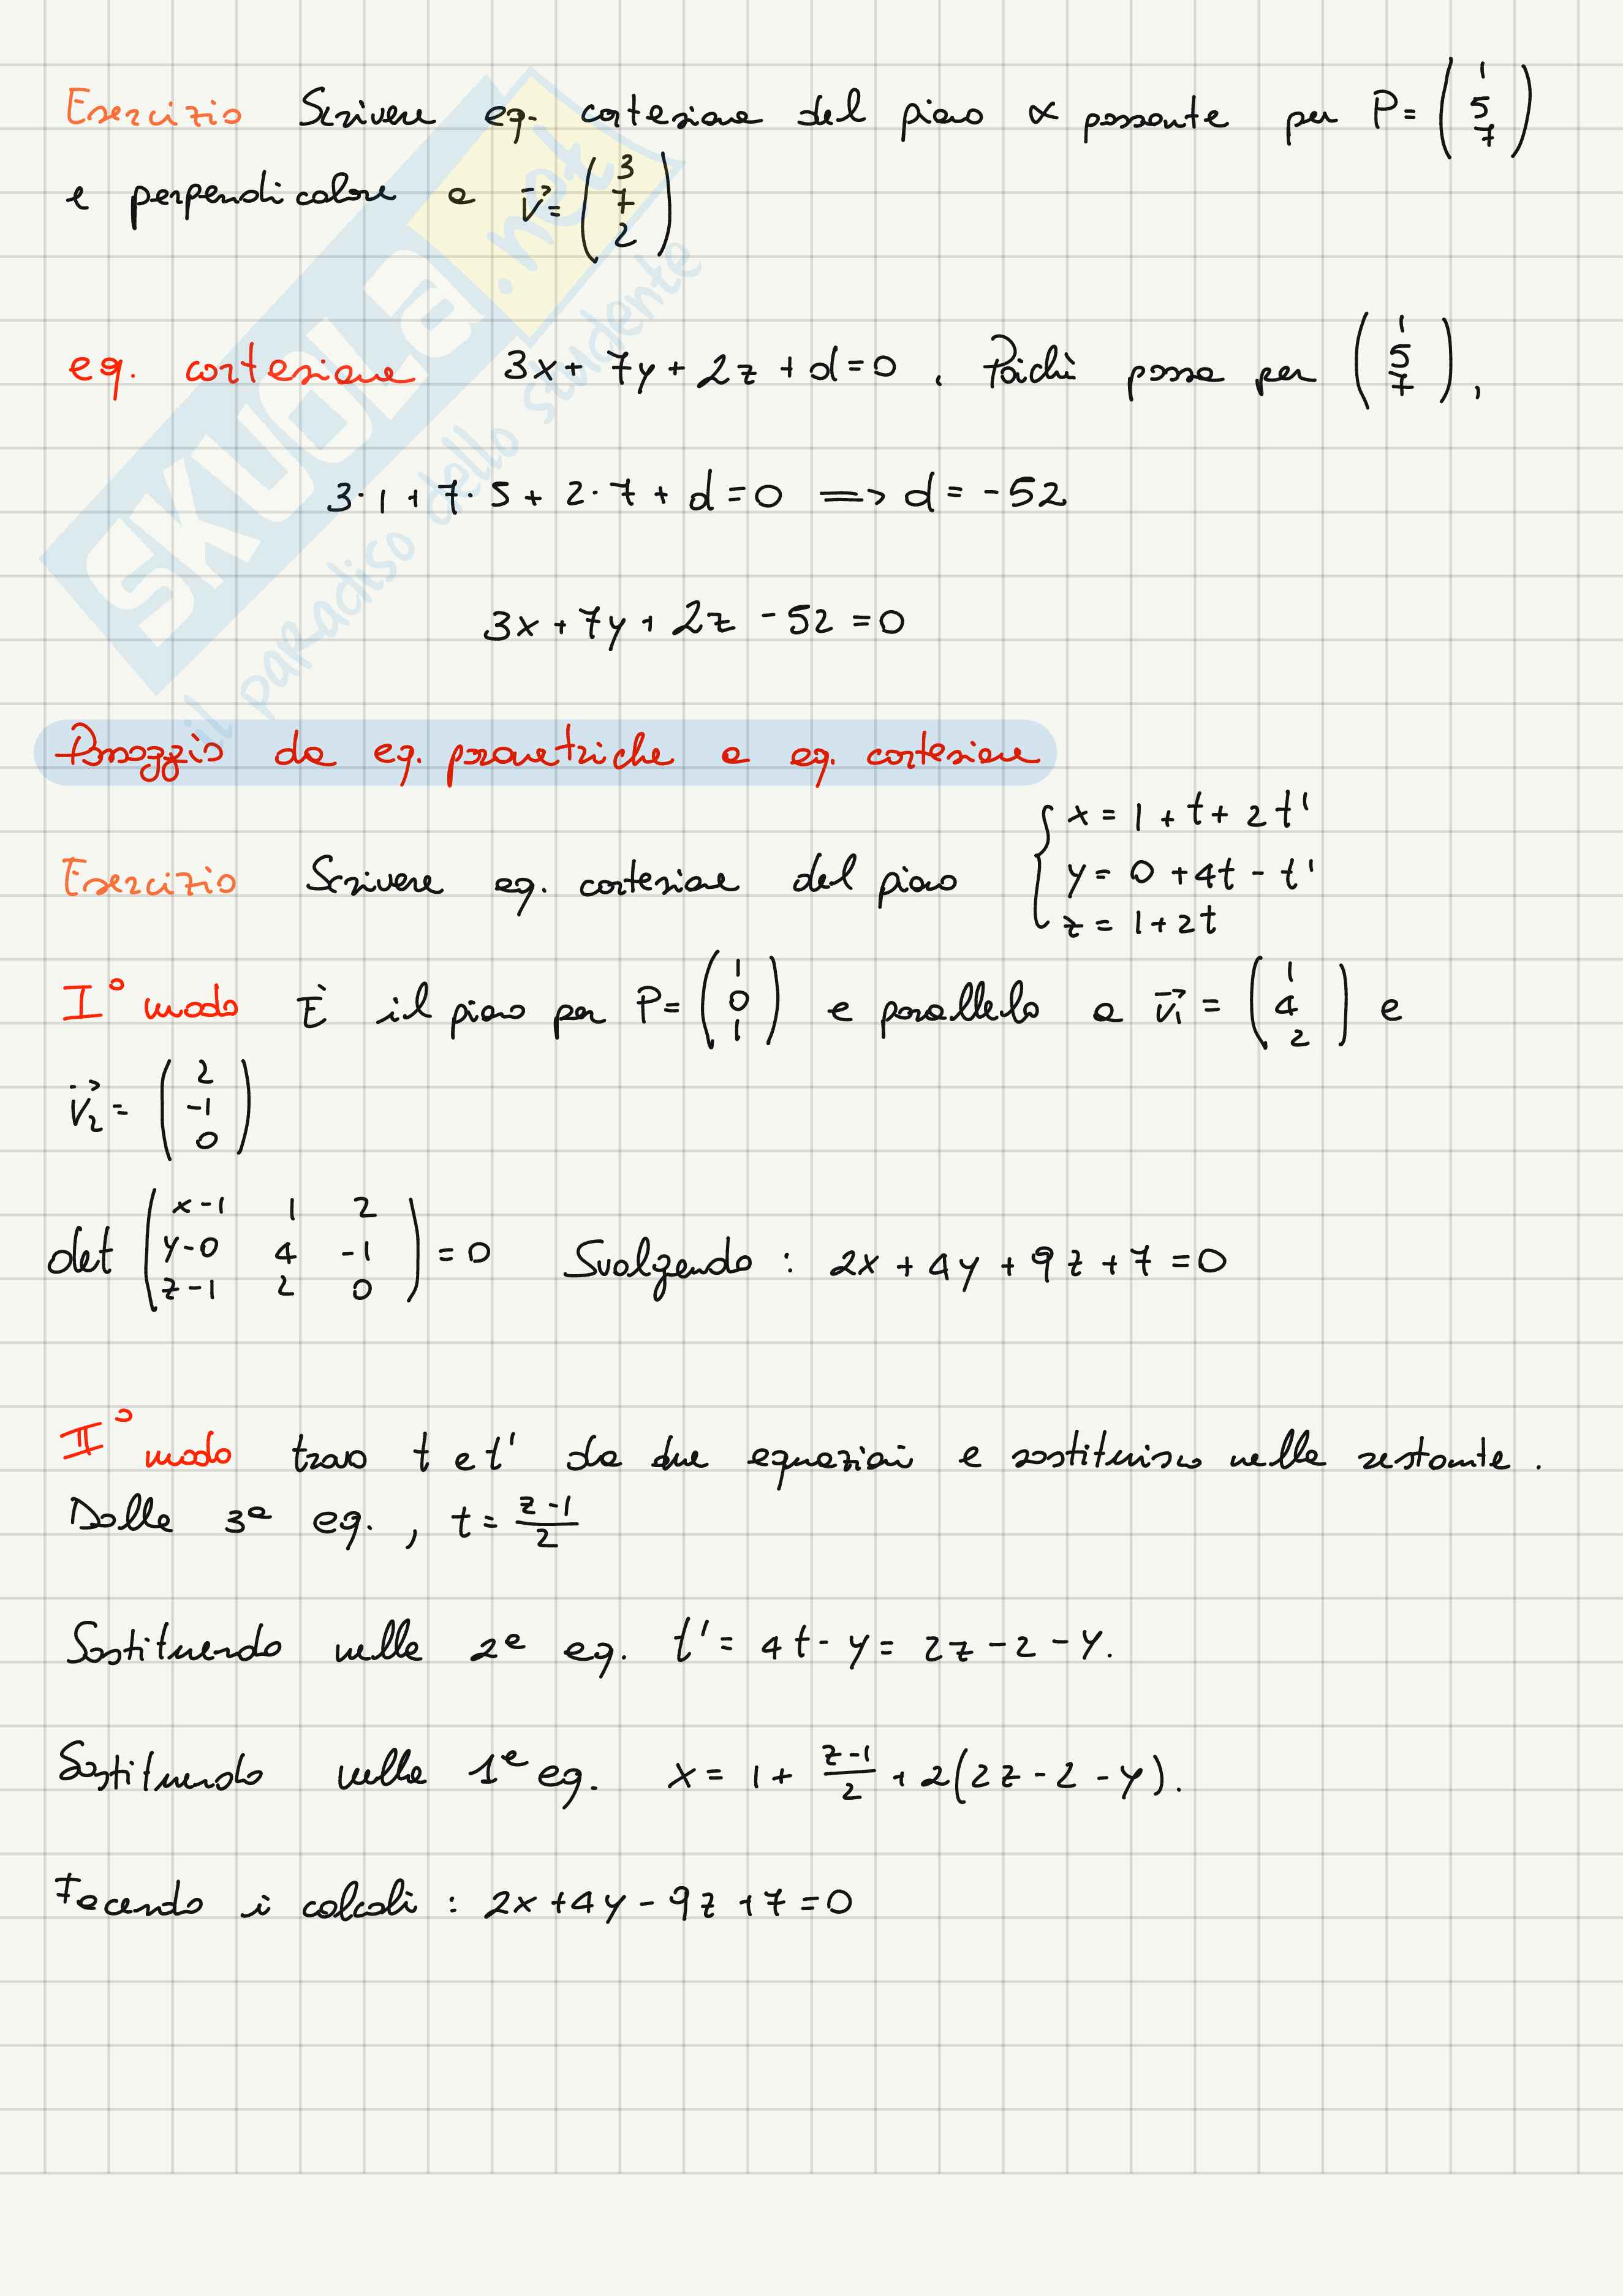 Esercizio Scrivere eq. cartesiana del piano α passante per P = (1 5 7)
e perpendicolare a v⃗ = (3 7 2)
eq. cartesiana 3x + 7y + 2z + d = 0. Poiché passa per (1 5 7),
3·1 + 7·5 + 2·7 + d = 0 ⟹ d = -52
3x + 7y + 2z - 52 = 0
Passaggio da eq. parametriche a eq. cartesiane
Esercizio Scrivere eq. cartesiane del piano { x = 1 + t + 2t'
y = 0 + 4t - t'
z = 1 + 2t
I° modo È il piano per P = (1 0 1) e parallelo a v⃗₁ = (1 4 2) e
v⃗₂ = (2 -1 0)
det (x-1 1 2
y-0 4 -1
z-1 2 0) = 0 Svolgendo : 2x + 4y + 9z + 7 = 0
II° modo trovo t e t' da due equazioni e sostituisco nella restante.
Dalla 3ª eq., t = (z-1)/2
Sostituendo nella 2ª eq. t' = 4t - y = 2z - 2 - y.
Sostituendo nella 1ª eq. x = 1 + (z-1)/2 + 2(2z - 2 - y).
Facendo i calcoli : 2x + 4y - 9z + 7 = 0
SKUOLA.net
il paradiso dello studente